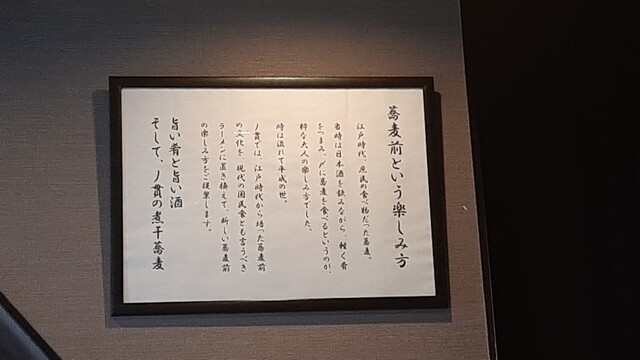 蕎麦前という楽しみ方
江戸時代、庶民の食べ物だった蕎麦。
当時は日本酒を飲みながら、軽く肴
をつまみ、〆に蕎麦を食べるというのが、
粋な大人の楽しみ方でした。
時は流れて平成の世。
ノ貫では、江戸時代から培った蕎麦前
の文化を、現代の国民食とも言うべき
ラーメンに置き換えて、新しい蕎麦前
の楽しみ方をご提案します。
旨い肴と旨い酒
そして、ノ貫の煮干蕎麦